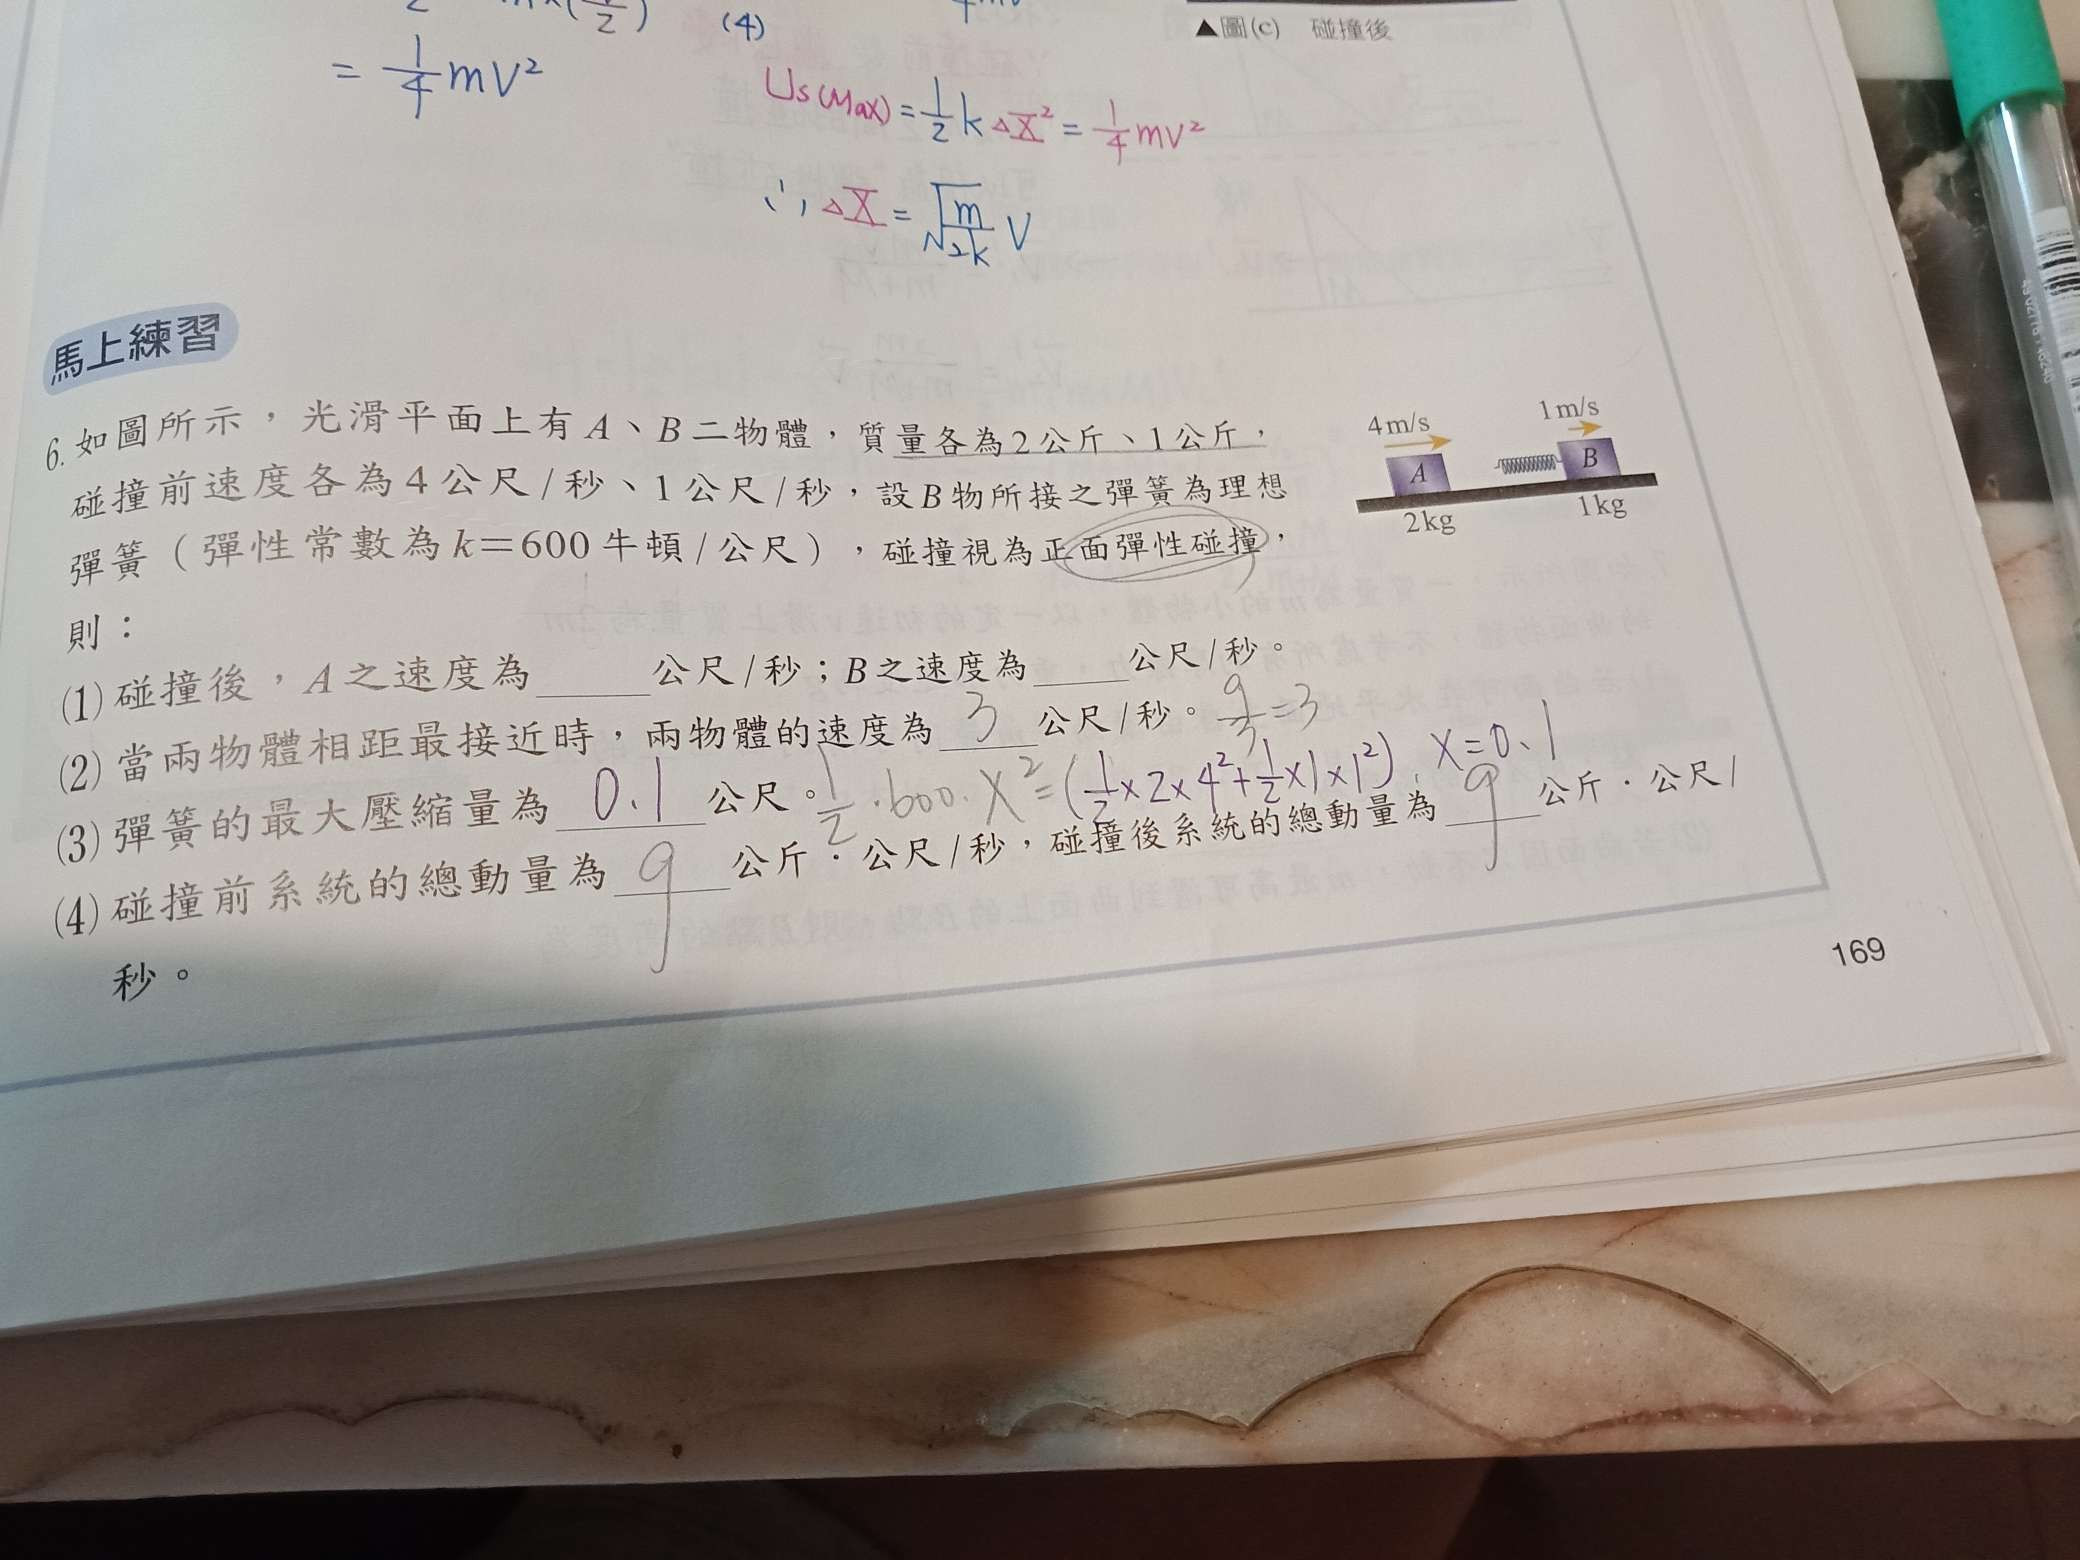 (4)
▲圖(c) 碰撞後
= 1/4 mV²
Us(Max) = 1/2 k △X² = 1/4 mv²
∴ △X = √(m/2k) V
馬上練習
6. 如圖所示，光滑平面上有A、B二物體，質量各為2公斤、1公斤，
碰撞前速度各為4公尺/秒、1公尺/秒，設B物所接之彈簧為理想
彈簧（彈性常數為k=600牛頓/公尺），碰撞視為正面彈性碰撞，
則：
4m/s
1m/s
A
B
2kg
1kg
(1) 碰撞後，A之速度為 公尺/秒；B之速度為 公尺/秒。
(2) 當兩物體相距最接近時，兩物體的速度為 3 公尺/秒。 9/3 = 3
(3) 彈簧的最大壓縮量為 0.1 公尺。 1/2 · 600 · X² = (1/2 × 2 × 4² + 1/2 × 1 × 1²), X = 0.1
(4) 碰撞前系統的總動量為 9 公斤．公尺/秒，碰撞後系統的總動量為 9 公斤．公尺/
秒。
169